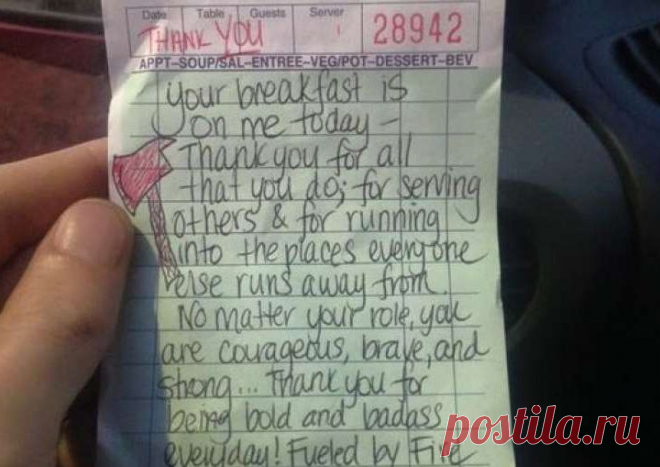 Date Table Guests Server
THANK YOU 28942
APPT-SOUP/SAL-ENTREE-VEG/POT-DESSERT-BEV
your breakfast is
on me today -
Thank you for all
that you do; for serving
others & for running
into the places everyone
else runs away from.
No matter your role, you
are courageous, brave, and
strong... Thank you for
being bold and badass
everyday! Fueled by Fire
postila.ru